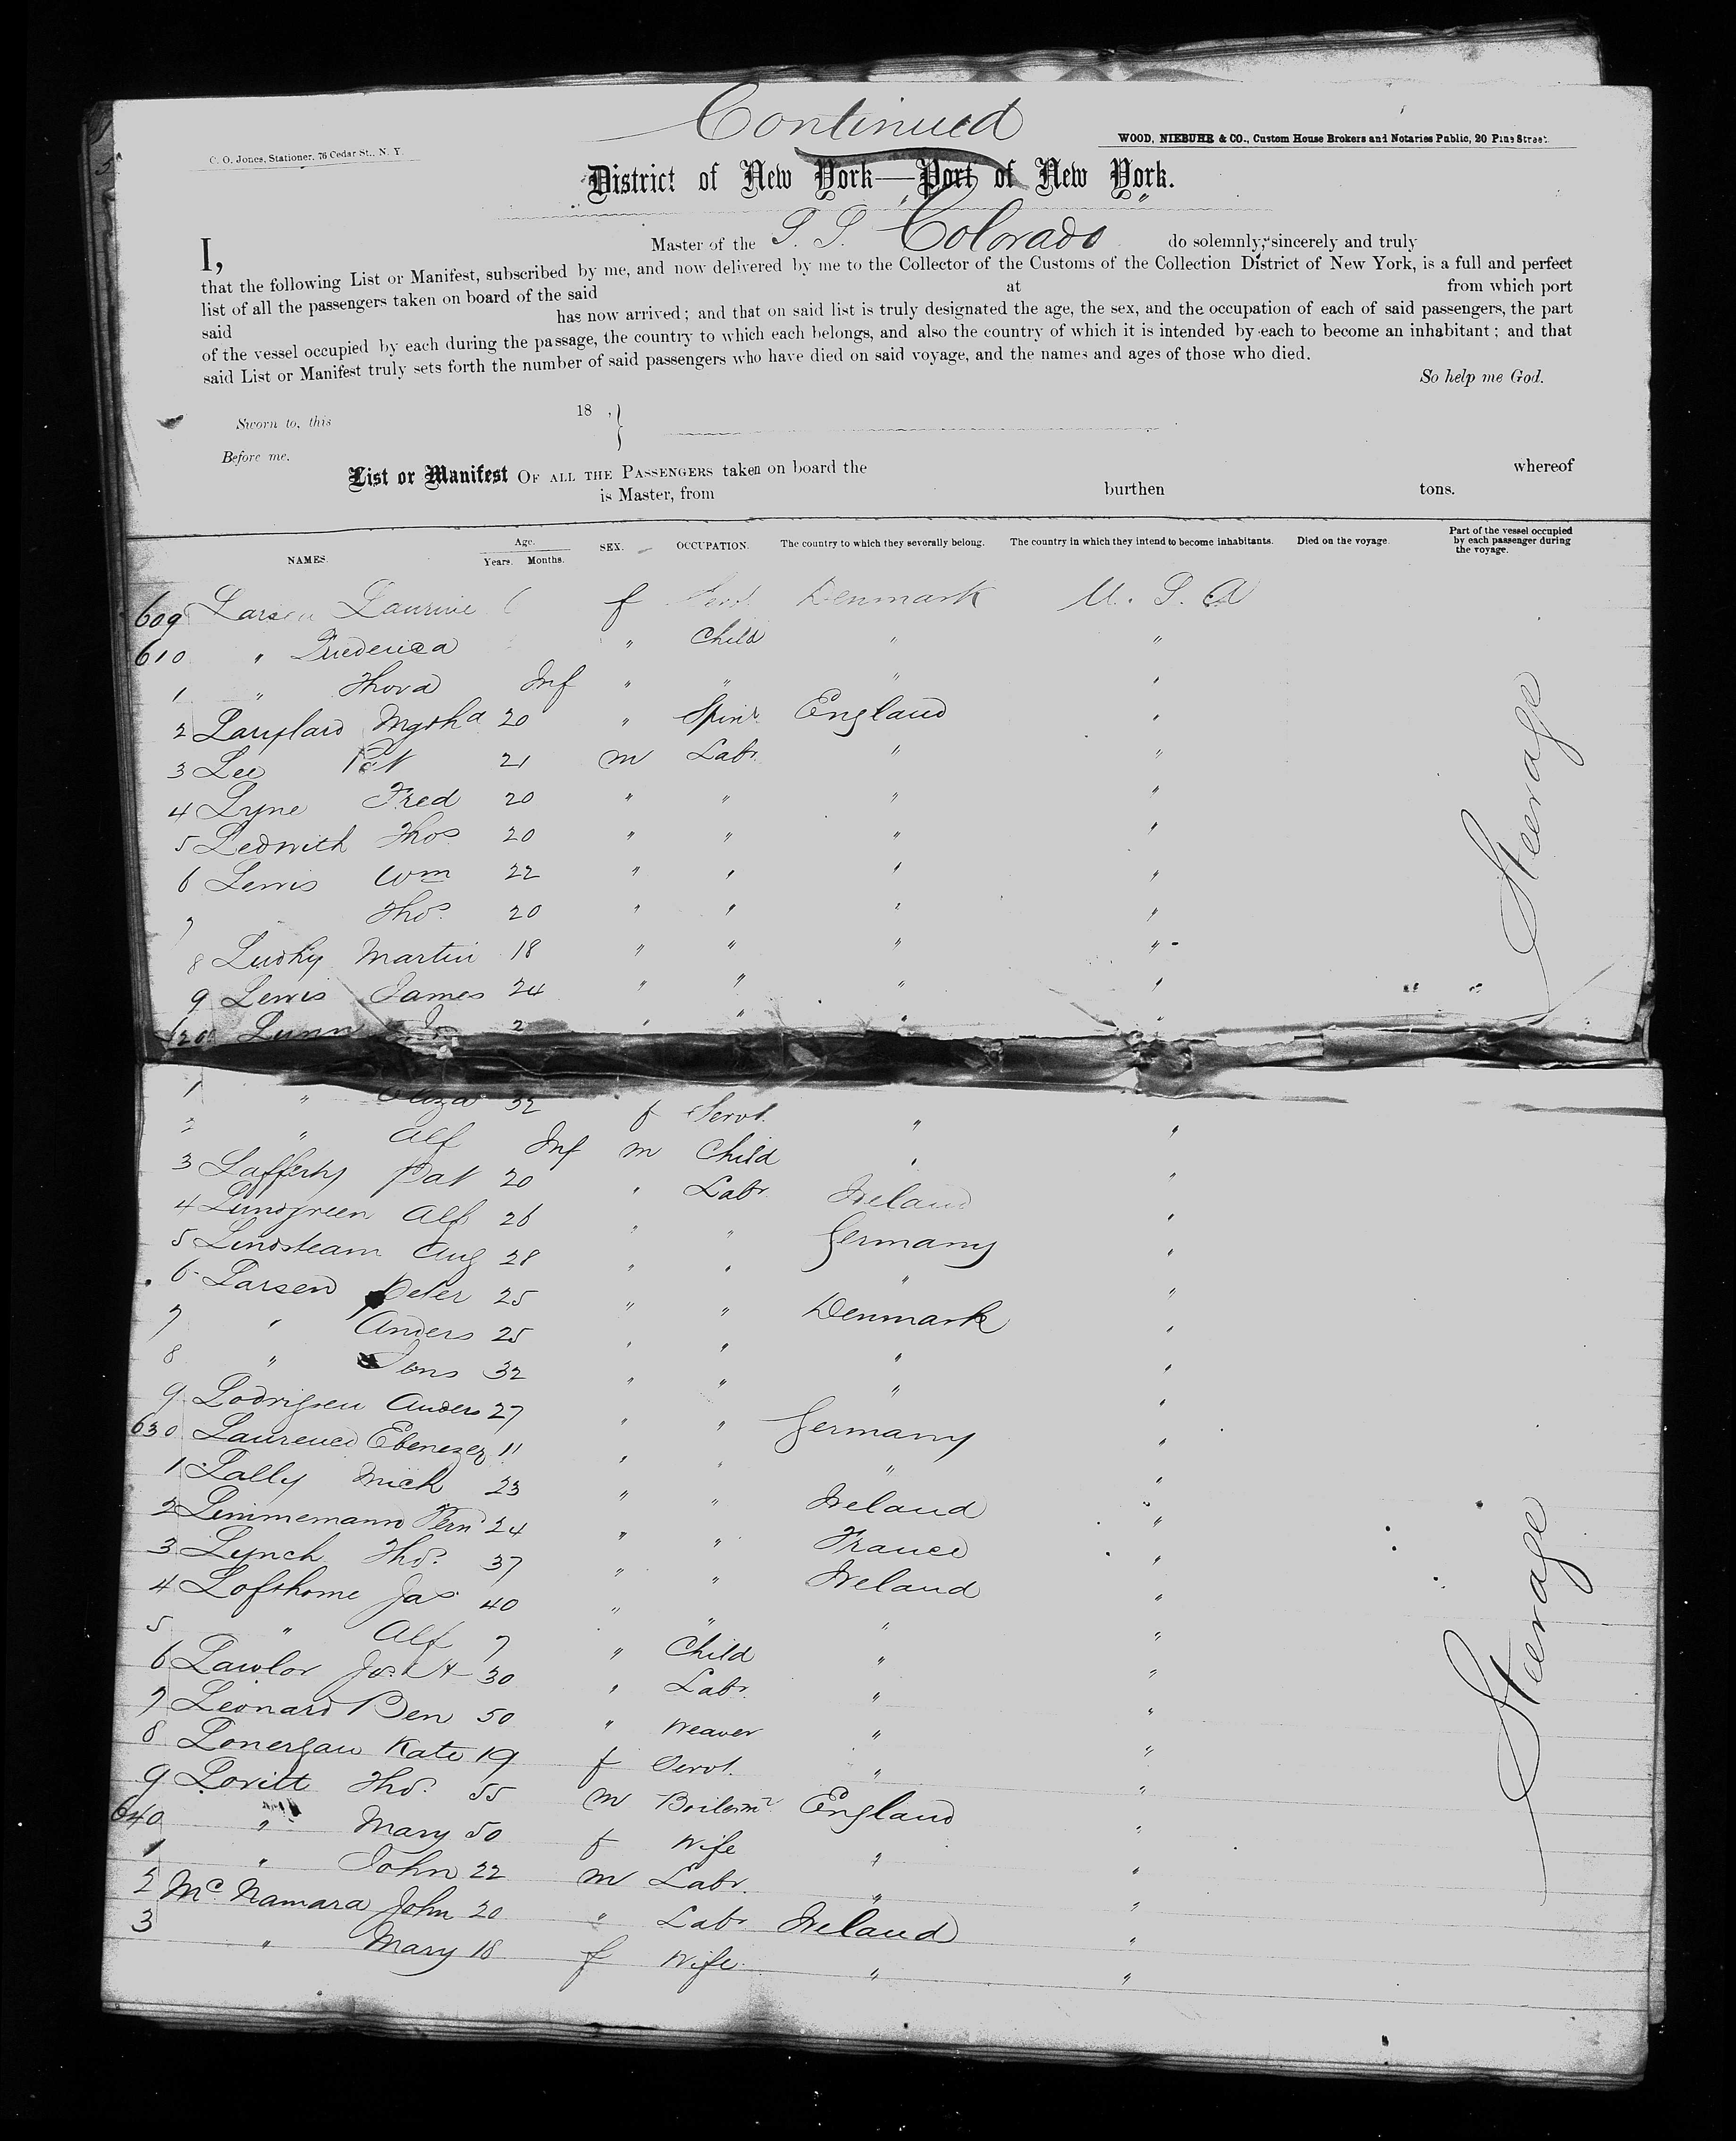 Continued
C. O. Jones, Stationer, 76 Cedar St., N. Y.
WOOD, NIEBUHR & CO., Custom House Brokers and Notaries Public, 20 Pine Street.
District of New York—Port of New York.
I, Master of the S. S. Colorado do solemnly, sincerely and truly
that the following List or Manifest, subscribed by me, and now delivered by me to the Collector of the Customs of the Collection District of New York, is a full and perfect
list of all the passengers taken on board of the said at from which port
said has now arrived; and that on said list is truly designated the age, the sex, and the occupation of each of said passengers, the part
of the vessel occupied by each during the passage, the country to which each belongs, and also the country of which it is intended by each to become an inhabitant; and that
said List or Manifest truly sets forth the number of said passengers who have died on said voyage, and the names and ages of those who died.
So help me God.
Sworn to, this 18 ,}
Before me.
List or Manifest OF ALL THE PASSENGERS taken on board the whereof
is Master, from burthen tons.
NAMES. Age. Years. Months. SEX. OCCUPATION. The country to which they severally belong. The country in which they intend to become inhabitants. Died on the voyage. Part of the vessel occupied by each passenger during the voyage.
609 Larsen Laurine f Servt. Denmark U. S. A
610 " " Child " "
1 " Thova Inf " " " "
2 20 " Spinr. England "
3 Lee Pat 21 m Labr. " "
4 Lyne Fred 20 " " " "
5 Ledwith Thos 20 " " " "
6 Lewis Wm 22 " " " "
7 Thos. 20 " " " "
8 Martin 18 " " " "
9 Lewis James 24 " " " "
620 Lunn " " " "
1 " Eliza 32 f Servt. " "
2 " Alf Inf m Child " "
3 Lafferty Pat 20 " Labr. Ireland "
4 Lundgreen Alf 26 " " Germany "
5 Lindsteam Aug 28 " " " "
6 Larsen Peter 25 " " Denmark "
7 " Anders 25 " " " "
8 " Jens 32 " " " "
9 Lodrigsen Anders 27 " " Germany "
630 Laurence Ebenezer 11 " " " "
1 Lally Mich 23 " " Ireland "
2 Limmemann 24 " " France "
3 Lynch Thos. 37 " " Ireland "
4 Lofthome Jas 40 " " " "
5 " Alf 7 " Child " "
6 Lawlor 30 " Labr. " "
7 Leonard Ben 50 " Weaver " "
8 Lonergan Kate 19 f Servt. " "
9 Lovitt Thos. 55 m Boilermr. England "
640 " Mary 50 f Wife " "
1 " John 22 m Labr. " "
2 McNamara John 20 " Labr. Ireland "
3 " Mary 18 f Wife " "
Steerage
Steerage